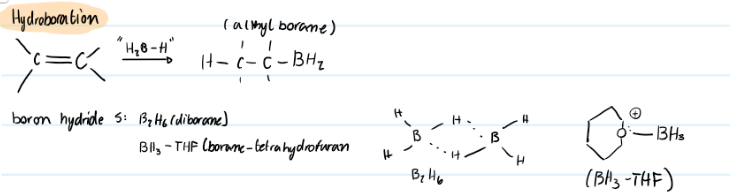 Hydroboration
(alkyl borane)
C=C "H₂B-H" H-C-C-BH₂
boron hydrides: B₂H₆ (diborane)
BH₃-THF (borane-tetrahydrofuran
H H H
B B
H H H
B₂H₆
⊕
O-BH₃
(BH₃-THF)